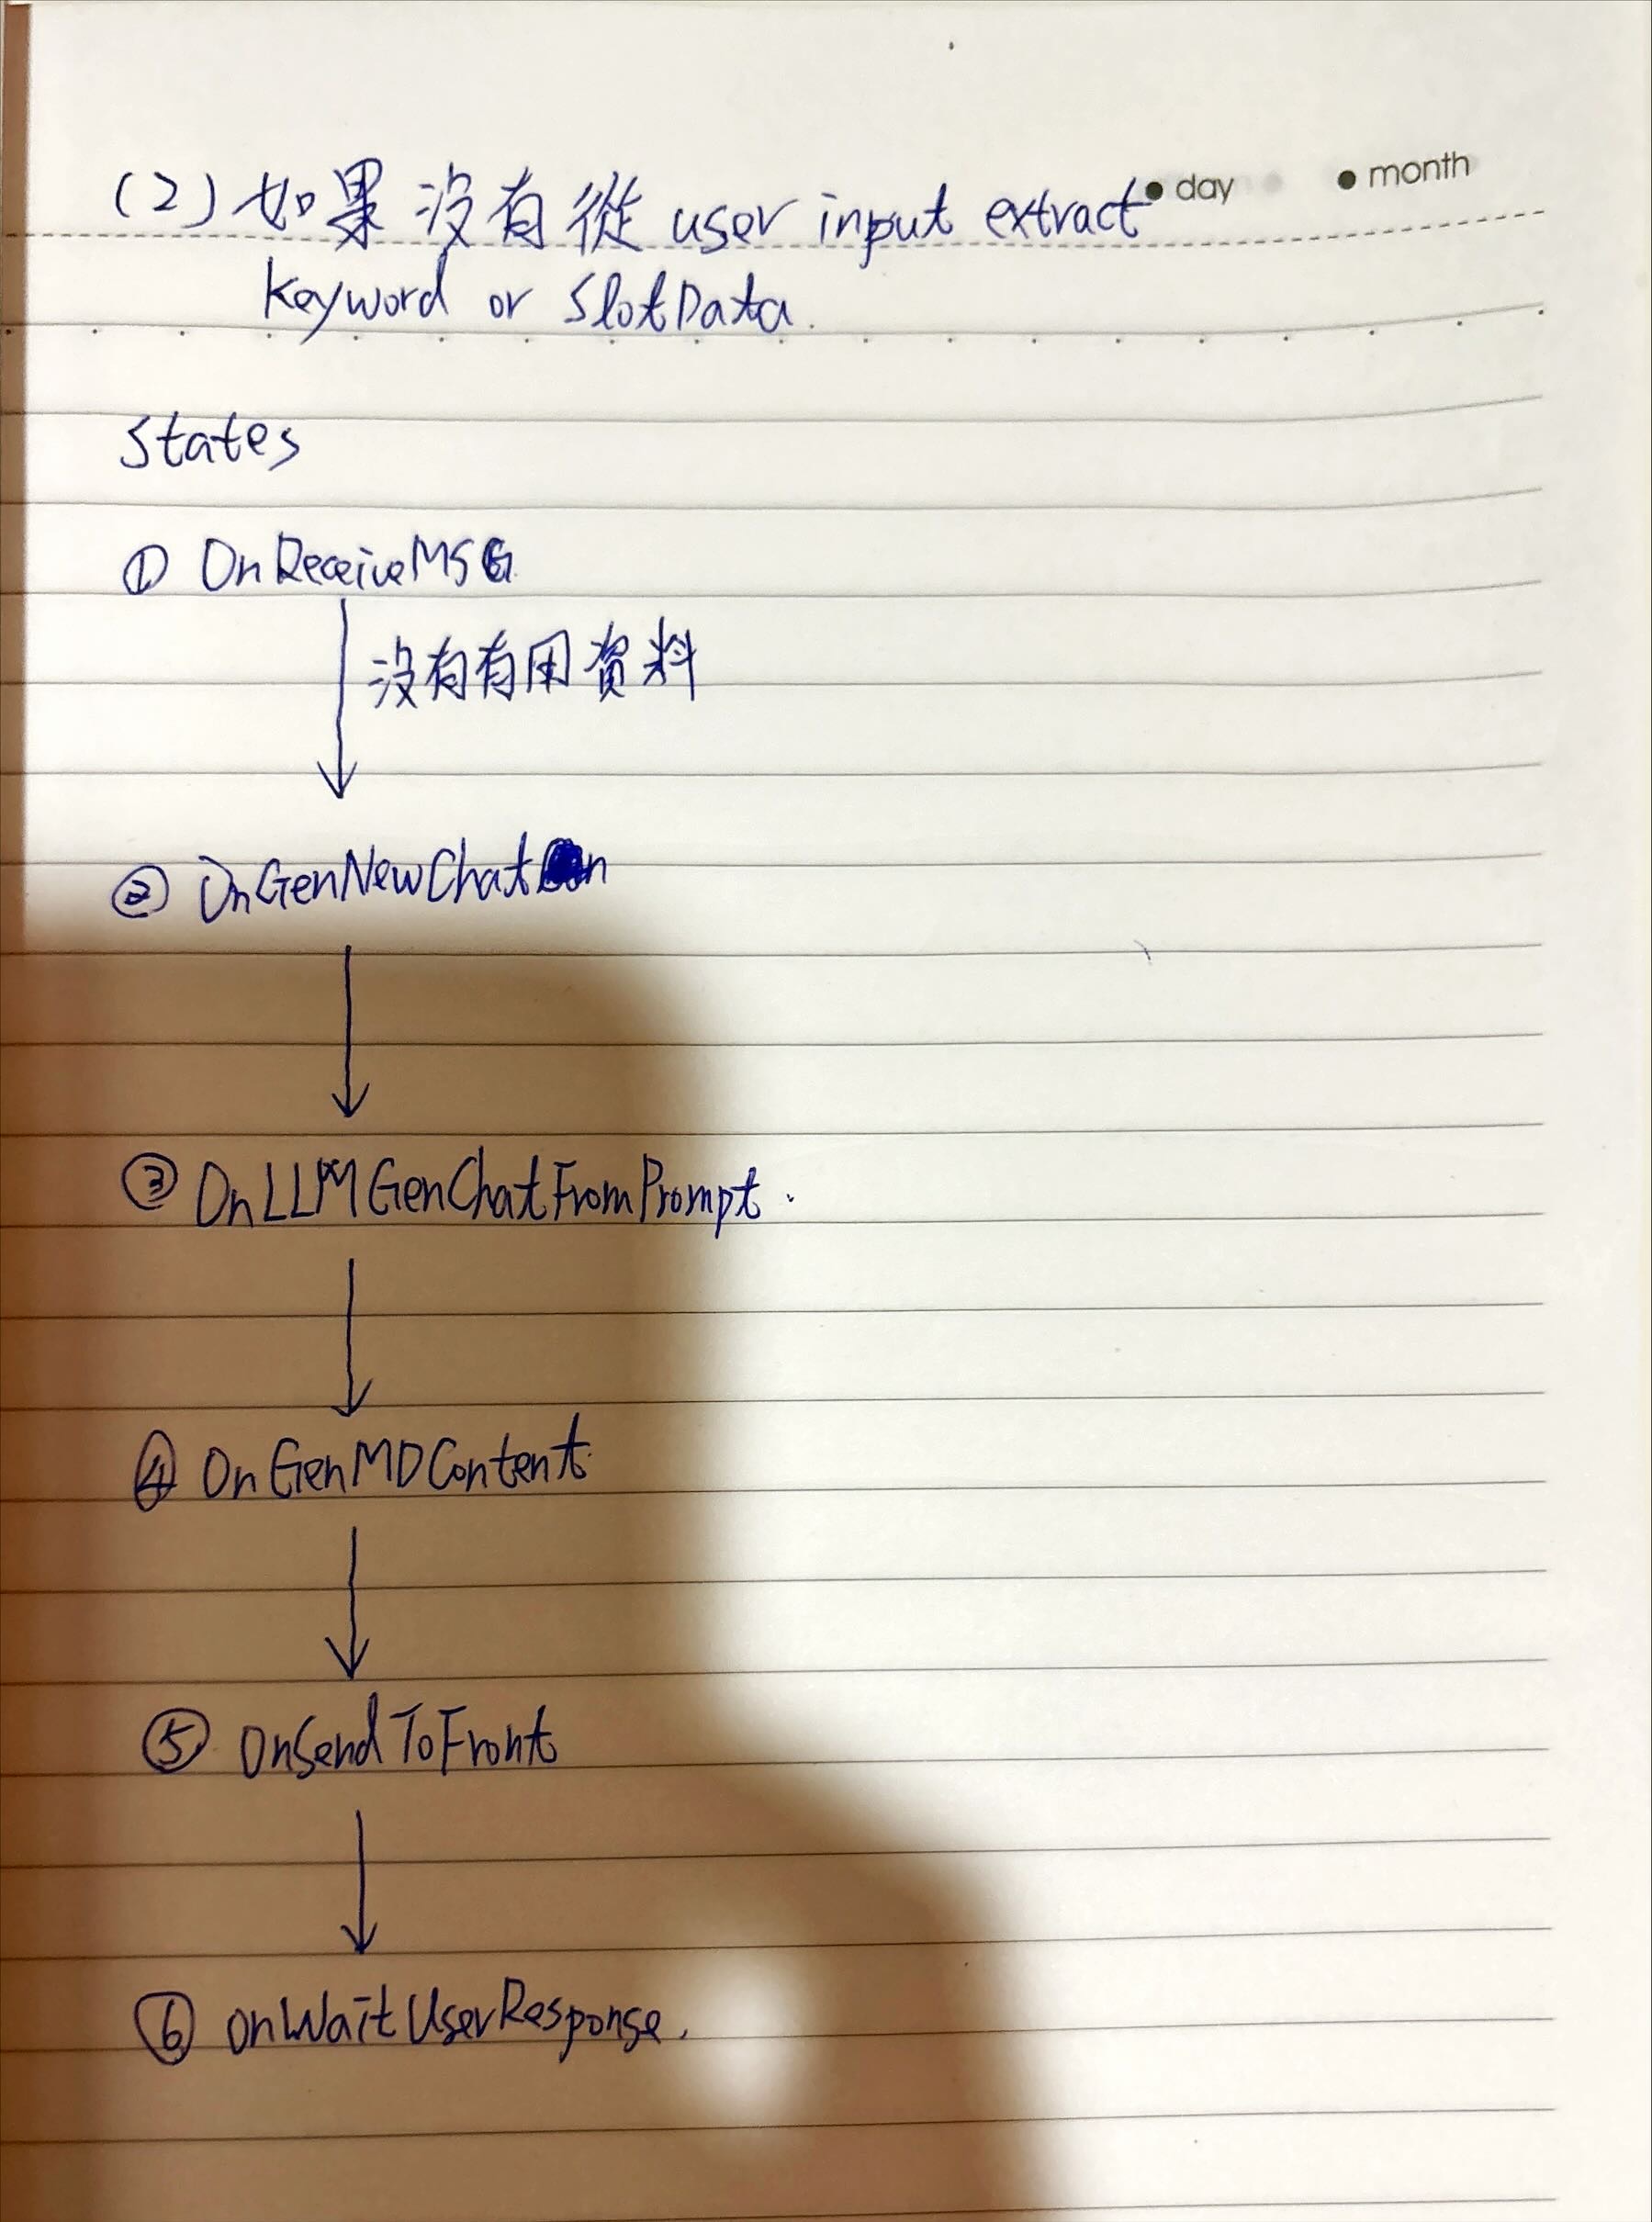 day month
(2) 如果沒有從 user input extract
keyword or SlotData.
States
① OnReceiveMSG
沒有有用資料
② OnGenNewChat
③ OnLLMGenChatFromPrompt.
④ OnGenMDContent
⑤ OnSendToFront
⑥ OnWaitUserResponse.